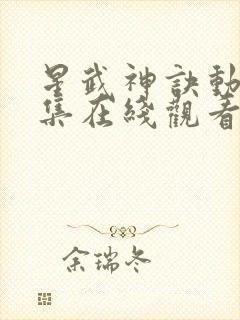 星武神訣動
集在綫觀看
余瑞冬